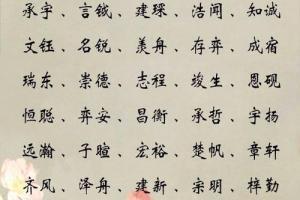 承宇、言钺、建琛、浩闻、知诚
文钰、名锐、羡舟、存弈、成宿
瑞东、崇德、志程、竣生、恩砚
恒聪、弈安、昌衡、承哲、宇扬
远瀚、子暄、宏裕、楚帆、章轩
齐风、泽舟、建新、宗明、梓勤